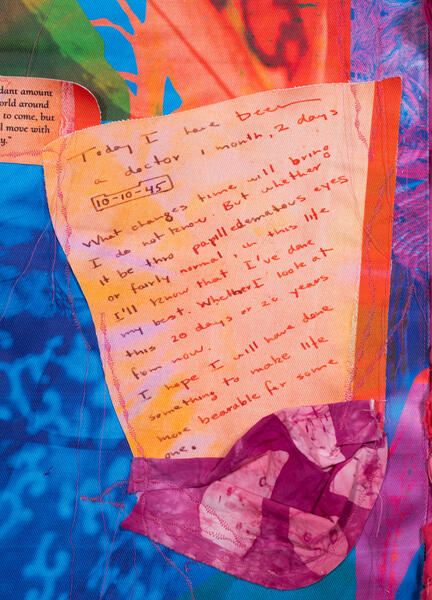 dant amount
orld around
to come, but
l move with
y."
Today I have been
a doctor 1 month, 2 days
10-10-45
What changes time will bring
I do not know. But whether
it be thro papilledematous eyes
or fairly normal in this life
I'll know that I've done
my best. Whether I look at
this 20 days or 20 years
from now.
I hope I will have done
something to make life
more bearable for some
one.